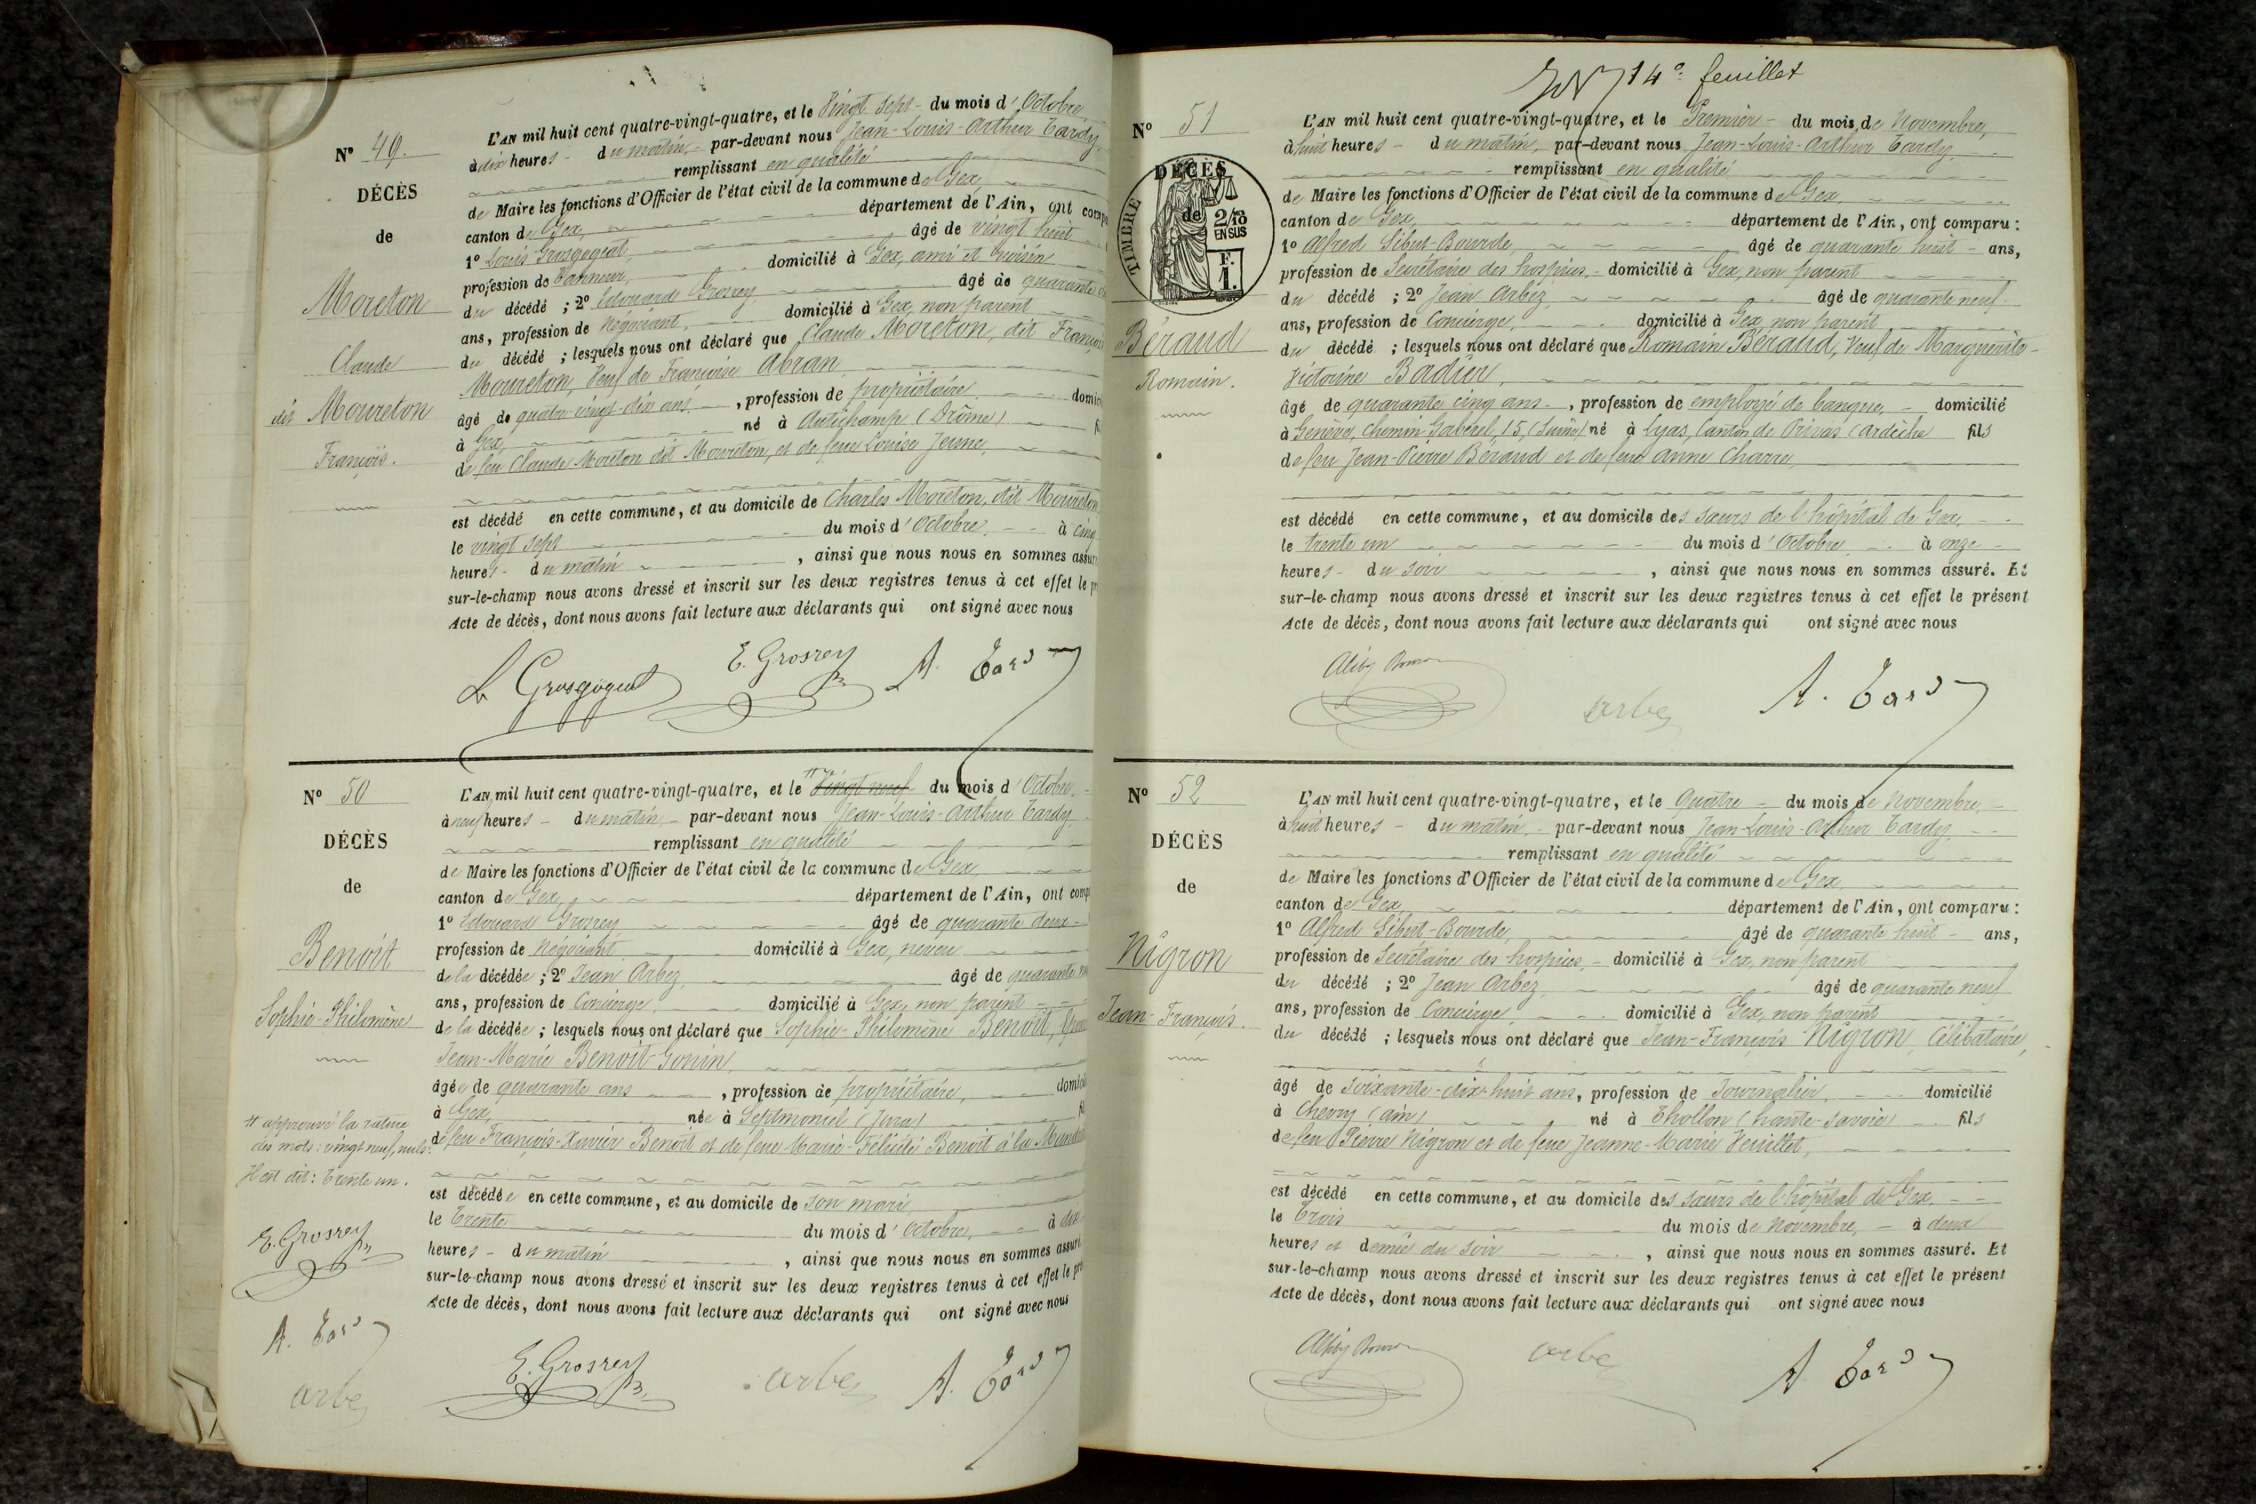 Nº 49.
DÉCÈS
de
Moreton
Claude
dit Moureton
François.
L'AN mil huit cent quatre-vingt-quatre, et le Vingt sept du mois d'Octobre
à dix heures du matin, par-devant nous Jean-Louis-Arthur Tardy
remplissant en qualité
de Maire les fonctions d'Officier de l'état civil de la commune de Gex,
canton de Gex, département de l'Ain, ont comp
1º Louis Grosgogeat, âgé de vingt huit
profession de Tanneur, domicilié à Gex, ami et voisin
du décédé ; 2º Edouard Grosrey âgé de quarante
ans, profession de Négociant, domicilié à Gex, non parent
du décédé ; lesquels nous ont déclaré que Claude Moreton, dit François
Moureton, Veuf de Françoise Abran
âgé de quatre-vingt-dix ans, profession de propriétaire domici
à Gex, né à Autichamp (Drôme)
de feu Claude Moreton dit Moureton, et de feue Louise Jeune,
est décédé en cette commune, et au domicile de Charles Moreton, dit Moureton
le vingt sept du mois d'Octobre à cinq
heures du matin, ainsi que nous nous en sommes assur
sur-le-champ nous avons dressé et inscrit sur les deux registres tenus à cet effet le p
Acte de décès, dont nous avons fait lecture aux déclarants qui ont signé avec nous
L Grosgogeat E. Grosrey A. Tardy
Nº 50
DÉCÈS
de
Benoit
Sophie-Philomène
# approuvé la rature
des mots: vingt neuf, nuls.
Il est dit: Trente un.
E. Grosrey
A. Tardy
arbez
L'AN mil huit cent quatre-vingt-quatre, et le # Vingt neuf du mois d'Octobre,
à neuf heures du matin, par-devant nous Jean-Louis-Arthur Tardy
remplissant en qualité
de Maire les fonctions d'Officier de l'état civil de la commune de Gex
canton de Gex, département de l'Ain, ont comp
1º Edouard Grosrey âgé de quarante deux
profession de Négociant domicilié à Gex, neveu
de la décédée ; 2º Jean Arbez, âgé de quarante n
ans, profession de Concierge domicilié à Gex, non parent
de la décédée ; lesquels nous ont déclaré que Sophie-Philomène Benoit,
Jean-Marie Benoit-Gonin,
âgée de quarante ans, profession de propriétaire, domici
à Gex, née à Septmoncel (Jura) fi
de feu François-Xavier Benoit et de feue Marie-Félicité Benoit à la
est décédée en cette commune, et au domicile de son mari,
le Trente du mois d'Octobre, à dix
heures du matin, ainsi que nous nous en sommes assuré
sur-le-champ nous avons dressé et inscrit sur les deux registres tenus à cet effet le pré
Acte de décès, dont nous avons fait lecture aux déclarants qui ont signé avec nous
E. Grosrey arbez A. Tardy
14e feuillet
Nº 51
DÉCÈS
de
TIMBRE
2/10 EN SUS
F. 1.
Béraud
Romain.
L'AN mil huit cent quatre-vingt-quatre, et le Premier du mois de Novembre,
à huit heures du matin, par-devant nous Jean-Louis-Arthur Tardy
remplissant en qualité
de Maire les fonctions d'Officier de l'état civil de la commune de Gex,
canton de Gex, département de l'Ain, ont comparu :
1º Alfred Gibut-Bourde, âgé de quarante huit ans,
profession de Secrétaire des hospices, domicilié à Gex, non parent
du décédé ; 2º Jean Arbez, âgé de quarante neuf
ans, profession de Concierge, domicilié à Gex, non parent
du décédé ; lesquels nous ont déclaré que Romain Béraud, Veuf de Marguerite-
Victorine Badier,
âgé de quarante cinq ans, profession de employé de banque, domicilié
à Genève, chemin Gabérel, 15, (Suisse) né à Lyas, Canton de Privas (Ardèche fils
de feu Jean-Pierre Béraud et de feue Anne Charre,
est décédé en cette commune, et au domicile des sœurs de l'hôpital de Gex,
le trente un du mois d'Octobre à onze
heures du soir, ainsi que nous nous en sommes assuré. Et
sur-le-champ nous avons dressé et inscrit sur les deux registres tenus à cet effet le présent
Acte de décès, dont nous avons fait lecture aux déclarants qui ont signé avec nous
arbez A. Tardy
Nº 52
DÉCÈS
de
Nigron
Jean-François.
L'AN mil huit cent quatre-vingt-quatre, et le Quatre du mois de Novembre,
à huit heures du matin, par-devant nous Jean-Louis-Arthur Tardy
remplissant en qualité
de Maire les fonctions d'Officier de l'état civil de la commune de Gex
canton de Gex, département de l'Ain, ont comparu :
1º Alfred Gibut-Bourde, âgé de quarante huit ans,
profession de Secrétaire des hospices, domicilié à Gex, non parent
du décédé ; 2º Jean Arbez, âgé de quarante neuf
ans, profession de Concierge domicilié à Gex, non parent
du décédé ; lesquels nous ont déclaré que Jean-François Nigron, Célibataire,
âgé de soixante-dix-huit ans, profession de Journalier, domicilié
à Chevry (Ain) né à Thollon (haute-Savoie) fils
de feu Pierre Nigron et de feue Jeanne-Marie Veuillet,
est décédé en cette commune, et au domicile des sœurs de l'hôpital de Gex
le Trois du mois de Novembre, à deux
heures et demie du soir, ainsi que nous nous en sommes assuré. Et
sur-le-champ nous avons dressé et inscrit sur les deux registres tenus à cet effet le présent
Acte de décès, dont nous avons fait lecture aux déclarants qui ont signé avec nous
arbez A. Tardy